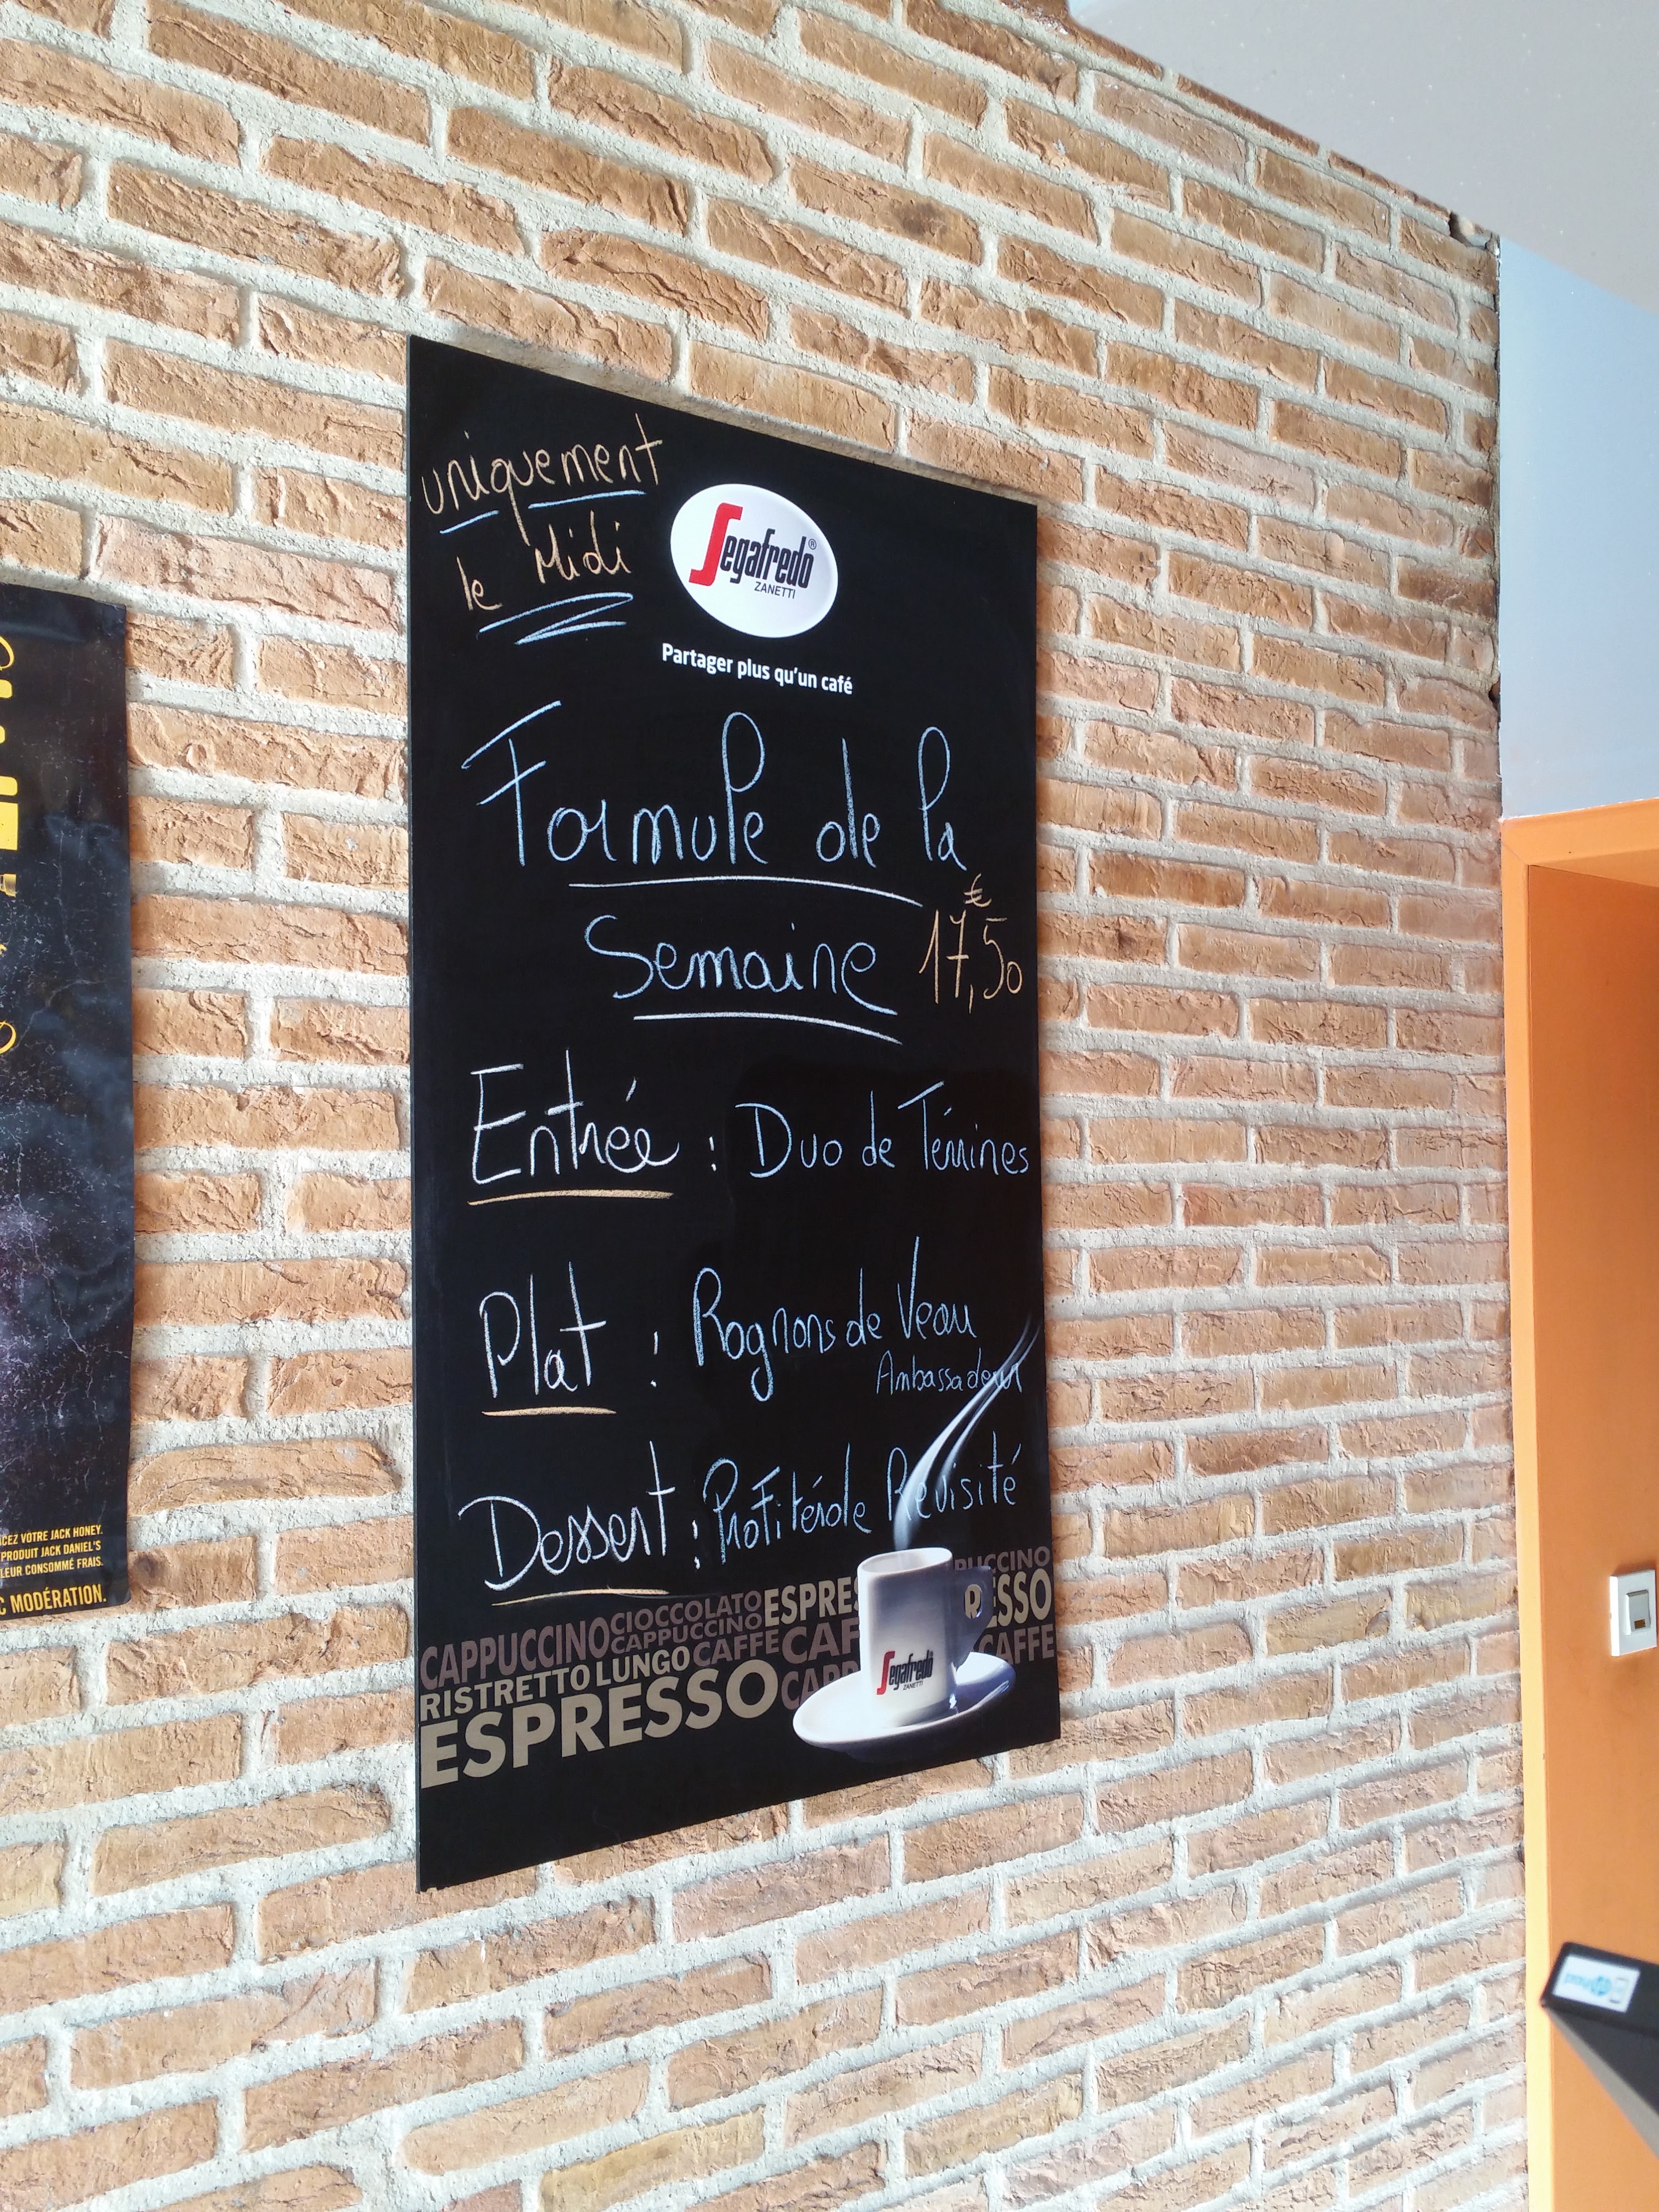 uniquement
le Midi
Segafredo®
ZANETTI
Partager plus qu'un café
Formule de la
Semaine
€
17,50
Entrée : Duo de Térrines
Plat : Rognons de Veau
Ambassadeur
Dessert : Profitérole Revisité
CAPPUCCINO CIOCCOLATO ESPRES PUCCINO
CAPPUCCINO RESSO
RISTRETTO LUNGO CAFFE CAF CAFFE
ESPRESSO CAPP
Segafredo
ZANETTI
CEZ VOTRE JACK HONEY.
PRODUIT JACK DANIEL'S
LEUR CONSOMMÉ FRAIS.
C MODÉRATION.